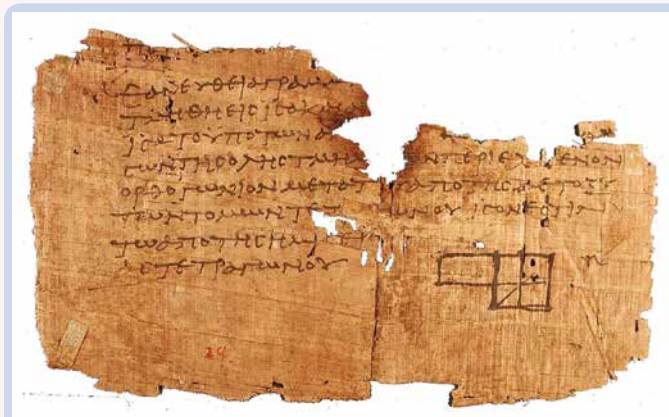 ΕΑΝΕΥΘΕΙΑΓΡΑΜΜ
ΤΜΗΘΗΕΙϹΙϹΑΚΑΙΑ
ΙϹΑΤΟΥΠΟΤΩΝΑ
ΙϹΩΝΤΗϹΟΛΗϹΤΜΗΜ ΩΝΠΕΡΙΕΧ ΜΕΝΟΝ
ΟΡΘΟΓΩΝΙΟΝΜΕΤΑΤΟΥΑΠΟΤΗϹΜΕΤΟΞΥ
ΤΩΝΤΟΜΩΝΤΕΤ ΩΝΟΥΙϹΟΝΕϹΤΙΝ
ΤΩΑΠΟΤΗϹΗΜΙϹΕΙ
ΑϹΤΕΤΡΑΓΩΝΟΥ
29